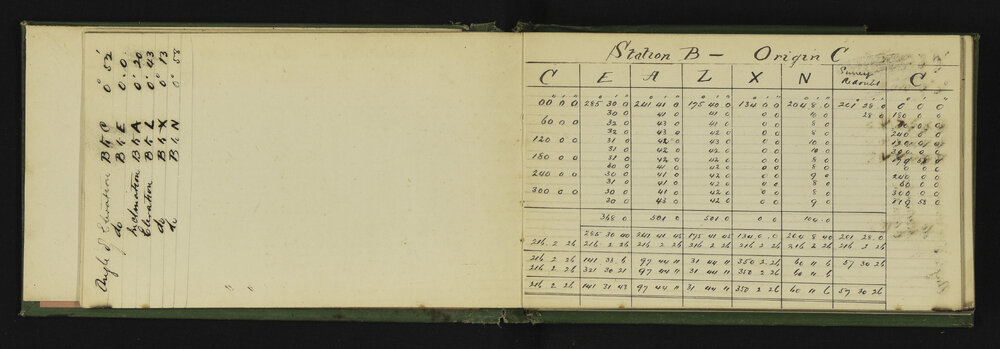 Angle of Elevation B to C 0° 52'
do B to E 0. 0.
Inclination B to A 0° 20
Elevation B to L 0° 43
do B to X 0° 13
do B to N 0° 58
Station B — Origin C
C E A L X N Survey Redoubt C
00 0 0 285 30 0 241 41 0 175 40 0 134 0 0 204 8 0 201 28 0 0 0 0
30 0 41 0 41 0 0 0 28 0 180 0 0
60 0 0 32 0 43 0 41 0 0 0 8 0
32 0 43 0 42 0 0 0 8 0 240 0 0
120 0 0 31 0 42 0 43 0 0 0 10 0
31 0 42 0 42 0 0 0 10 0
180 0 0 31 0 42 0 42 0 0 0 8 0
41 0 42 0 0 0 8 0 0 0 0
240 0 0 30 0 41 0 42 0 0 0 9 0 240 0 0
31 0 41 0 42 0 0 0 8 0 60 0 0
300 0 0 30 0 41 0 42 0 0 0 8 0 300 0 0
30 0 43 0 42 0 0 0 9 0
368 0 501 0 501 0 0 0 104 0
285 30 40 241 41 45 175 41 45 134 0 0 204 8 40 201 28 0
216 2 26 216 2 26 216 2 26 216 2 26 216 2 26 216 2 26 216 2 26
216 2 26 141 33 6 97 44 11 31 44 11 350 2 26 60 11 6 57 30 26
216 2 26 321 30 21 97 44 11 31 44 11 350 2 26 60 11 6
216 2 26 141 31 43 97 44 11 31 44 11 350 2 26 60 11 6 57 30 26